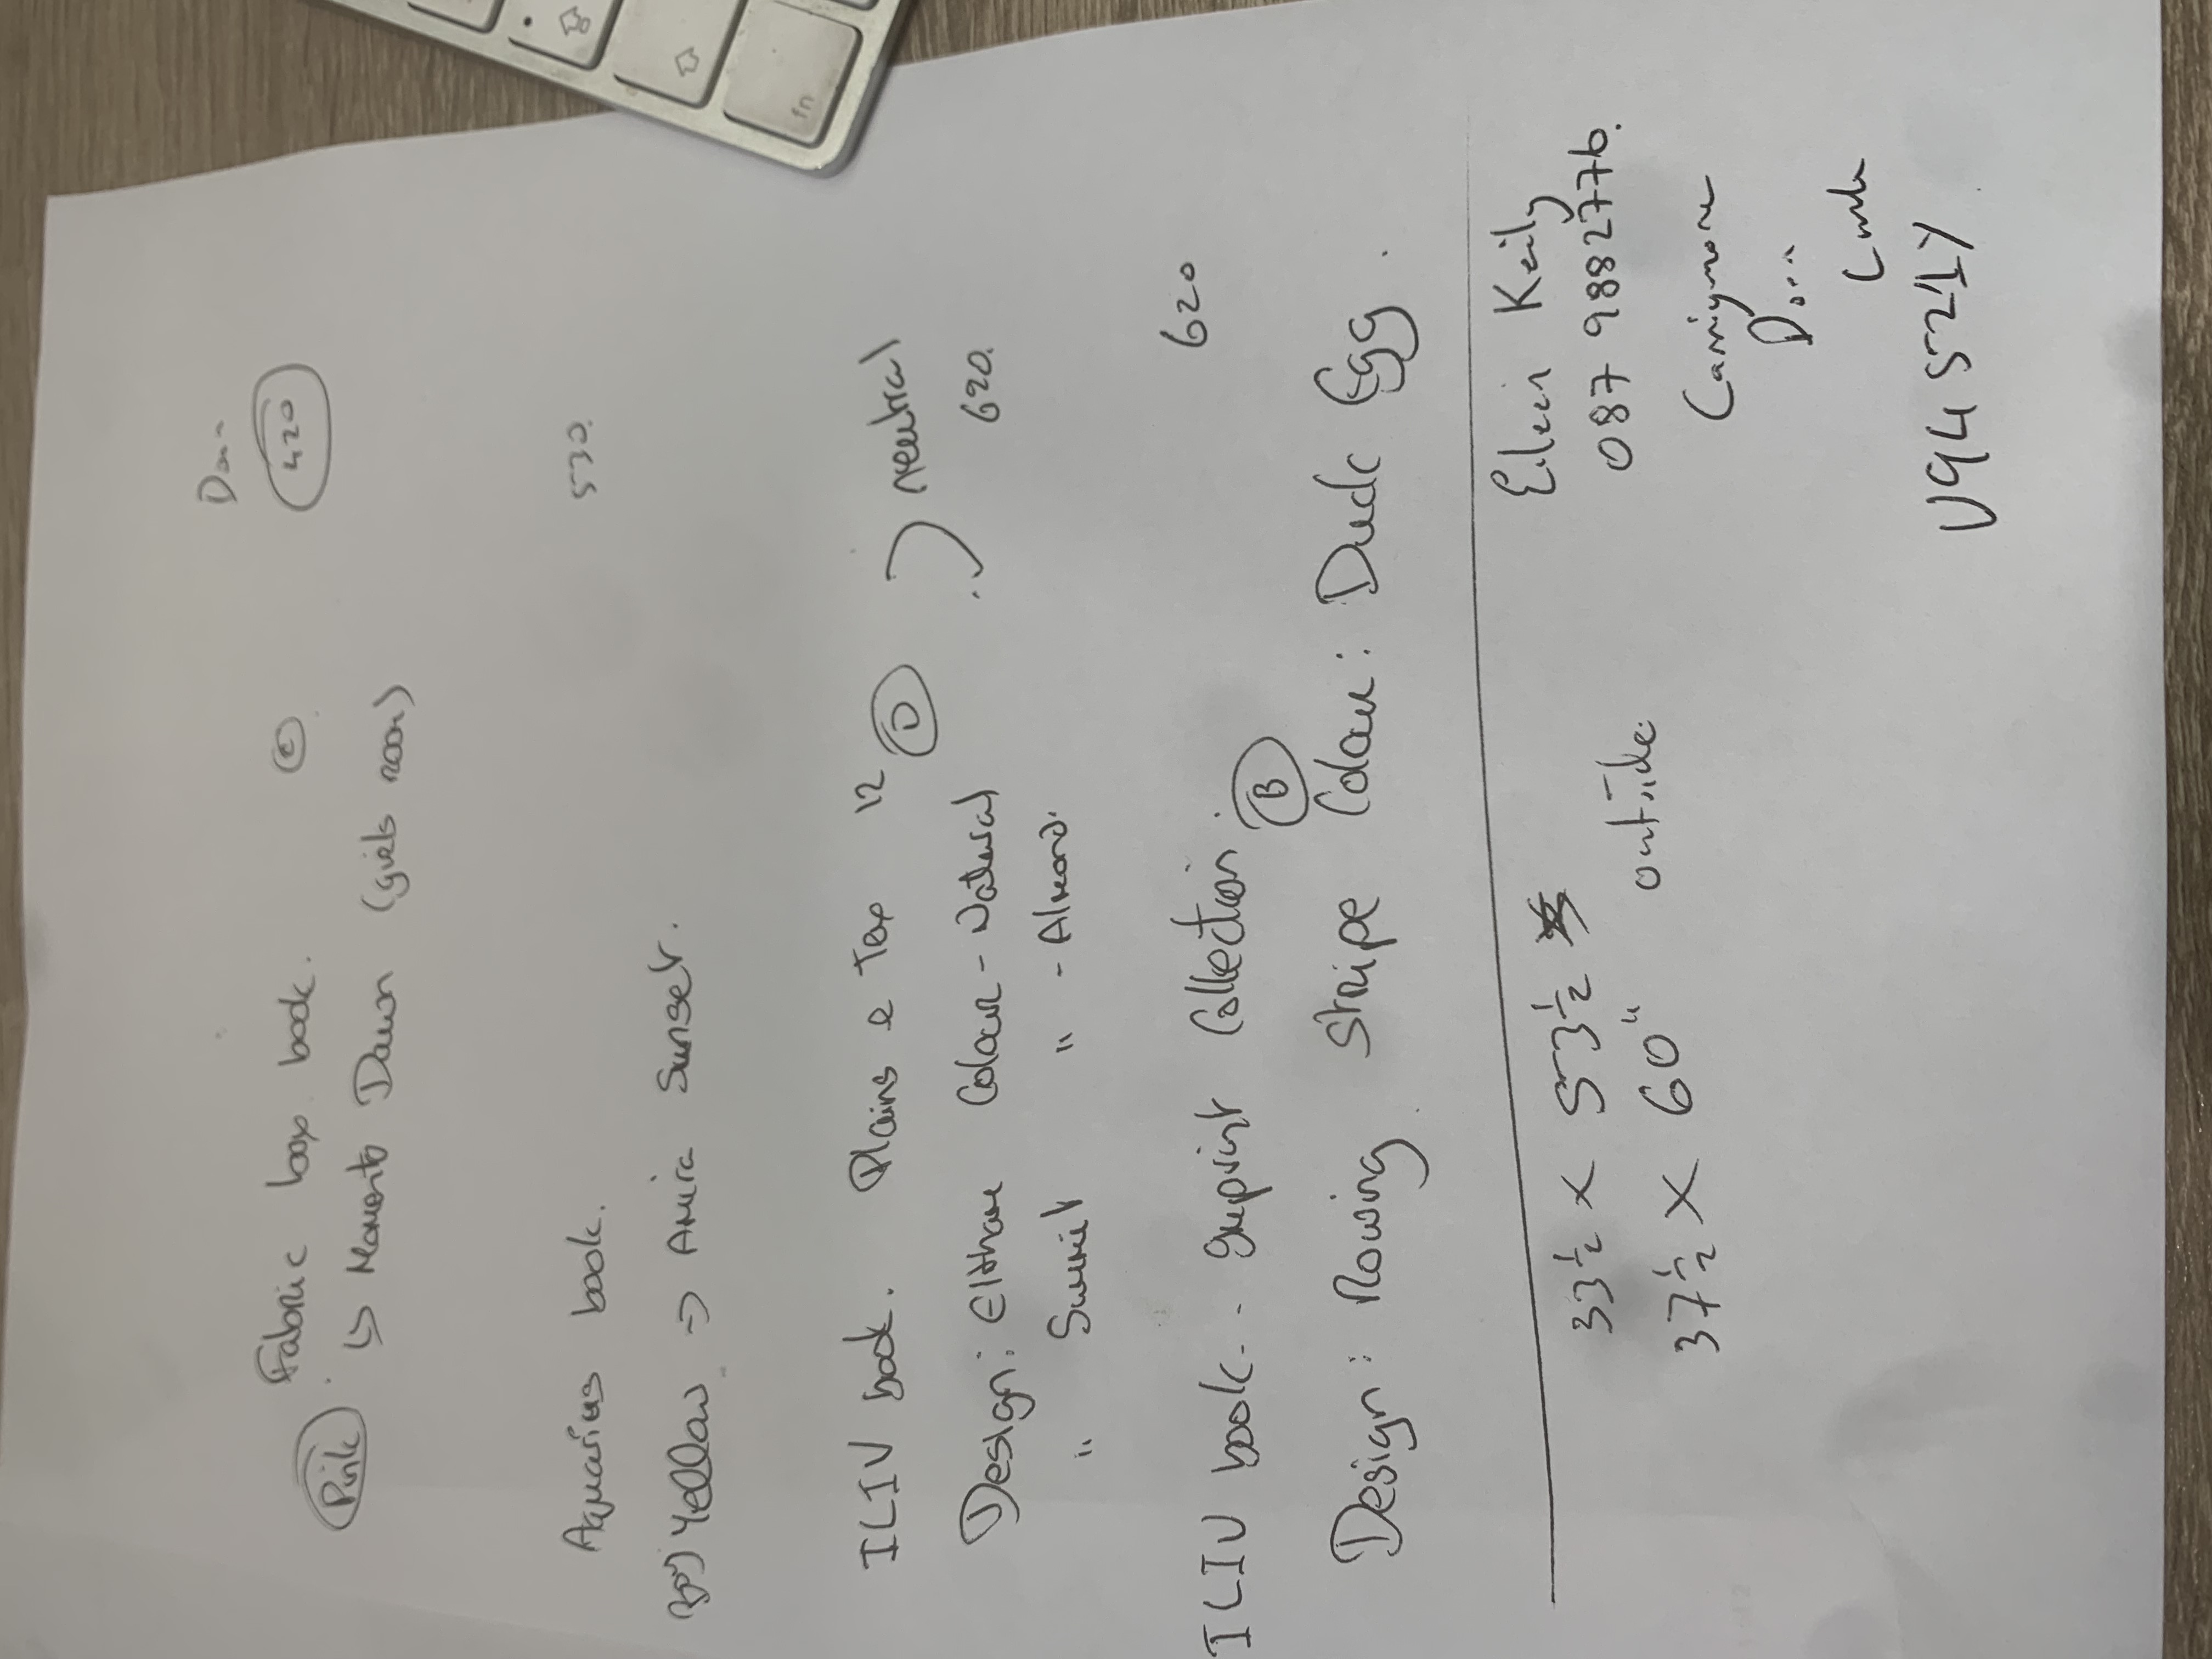 Don-
Fabric box book. © 420
Pink . ↳ Moments Dawn (girls room)
Aquarius book. 530.
Yellow => Amira Sunset.
ILIV book. Plains & Tex 12 D neutral
Design: Eltham Colour - Natural 620.
" Summit " - Almond.
ILIV book.. Imprint Collection. B 620
Design: Rowing Stripe Colour: Duck Egg.
Eileen Keily
33 1/2 x 53 1/2
087 9882776.
37 1/2 x 60" outside
Carrigmore
V94 521Y
fn